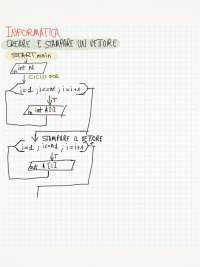 INFORMATICA
CREARE E STAMPARE UN VETORE
START main
int N
CICLO FOR
i=1, i<=n, i=i+1
T
int A[i]
STAMPARE IL VETORE
i=1, i<=n, i=i+1
T
int A[i]